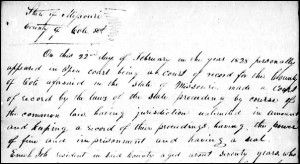 State of Missouri
County of Cole Sct
On this 22nd day of February in the year 1838 personally
appeared in open court being a court of record for this County
of Cole aforesaid in the State of Missouri, made a Court
of record by the laws of the state proceeding by course of
the common law having jurisdiction unlimited in amount
and keeping a record of their proceedings, having the power
of fine and imprisonment and having a seal
resident in said County aged about seventy years who